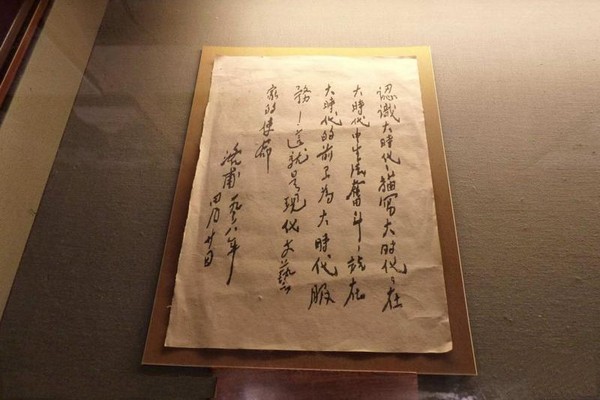 認識大時代，描寫大时代，在
大時代中生活奮斗，站在
大時代的前为大時代服
務！這就是現代文藝
家的使命
洛甫 一九三八年
四月廿日